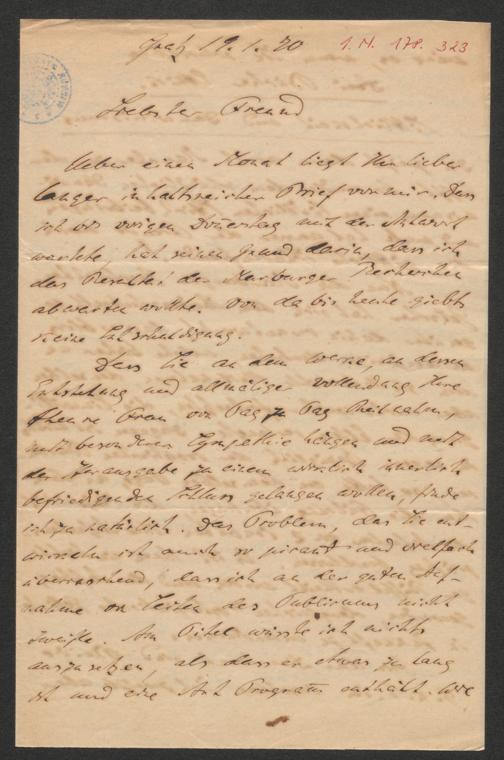 Graz 19. 1. 20
I. N. 178.323
Liebster Freund
Ueber einen Monat liegt Ihr lieber
langer inhaltsreicher Brief vor mir. Dass
ich bis vorigen Donerstag mit der Antwort
wartete, hat seinen Grund darin, dass ich
das Resultat der Marburger Recherchen
abwarten wollte. Von da bis heute giebts
keine Entschuldigung.
Dass Sie an dem Werke, an dessen
Entstehung und allmäliger Vollendung Ihre
theure Frau von Tag zu Tag Theil nahm,
mit besonderer Sympathie hängen und mit
der Herausgabe zu einem wirklich innerlich
befriedigenden Schluss gelangen wollen, finde
ich ja natürlich. Das Problem, das Sie ent-
wickeln ist auch so pikant und vielfach
überraschend, dass ich an der guten Auf-
nahme von Seiten des Publicums nicht
zweifle. Am Titel wüsste ich nichts
auszusetzen, als dass er etwas zu lang
ist und eine Art Programm enthält. Wie